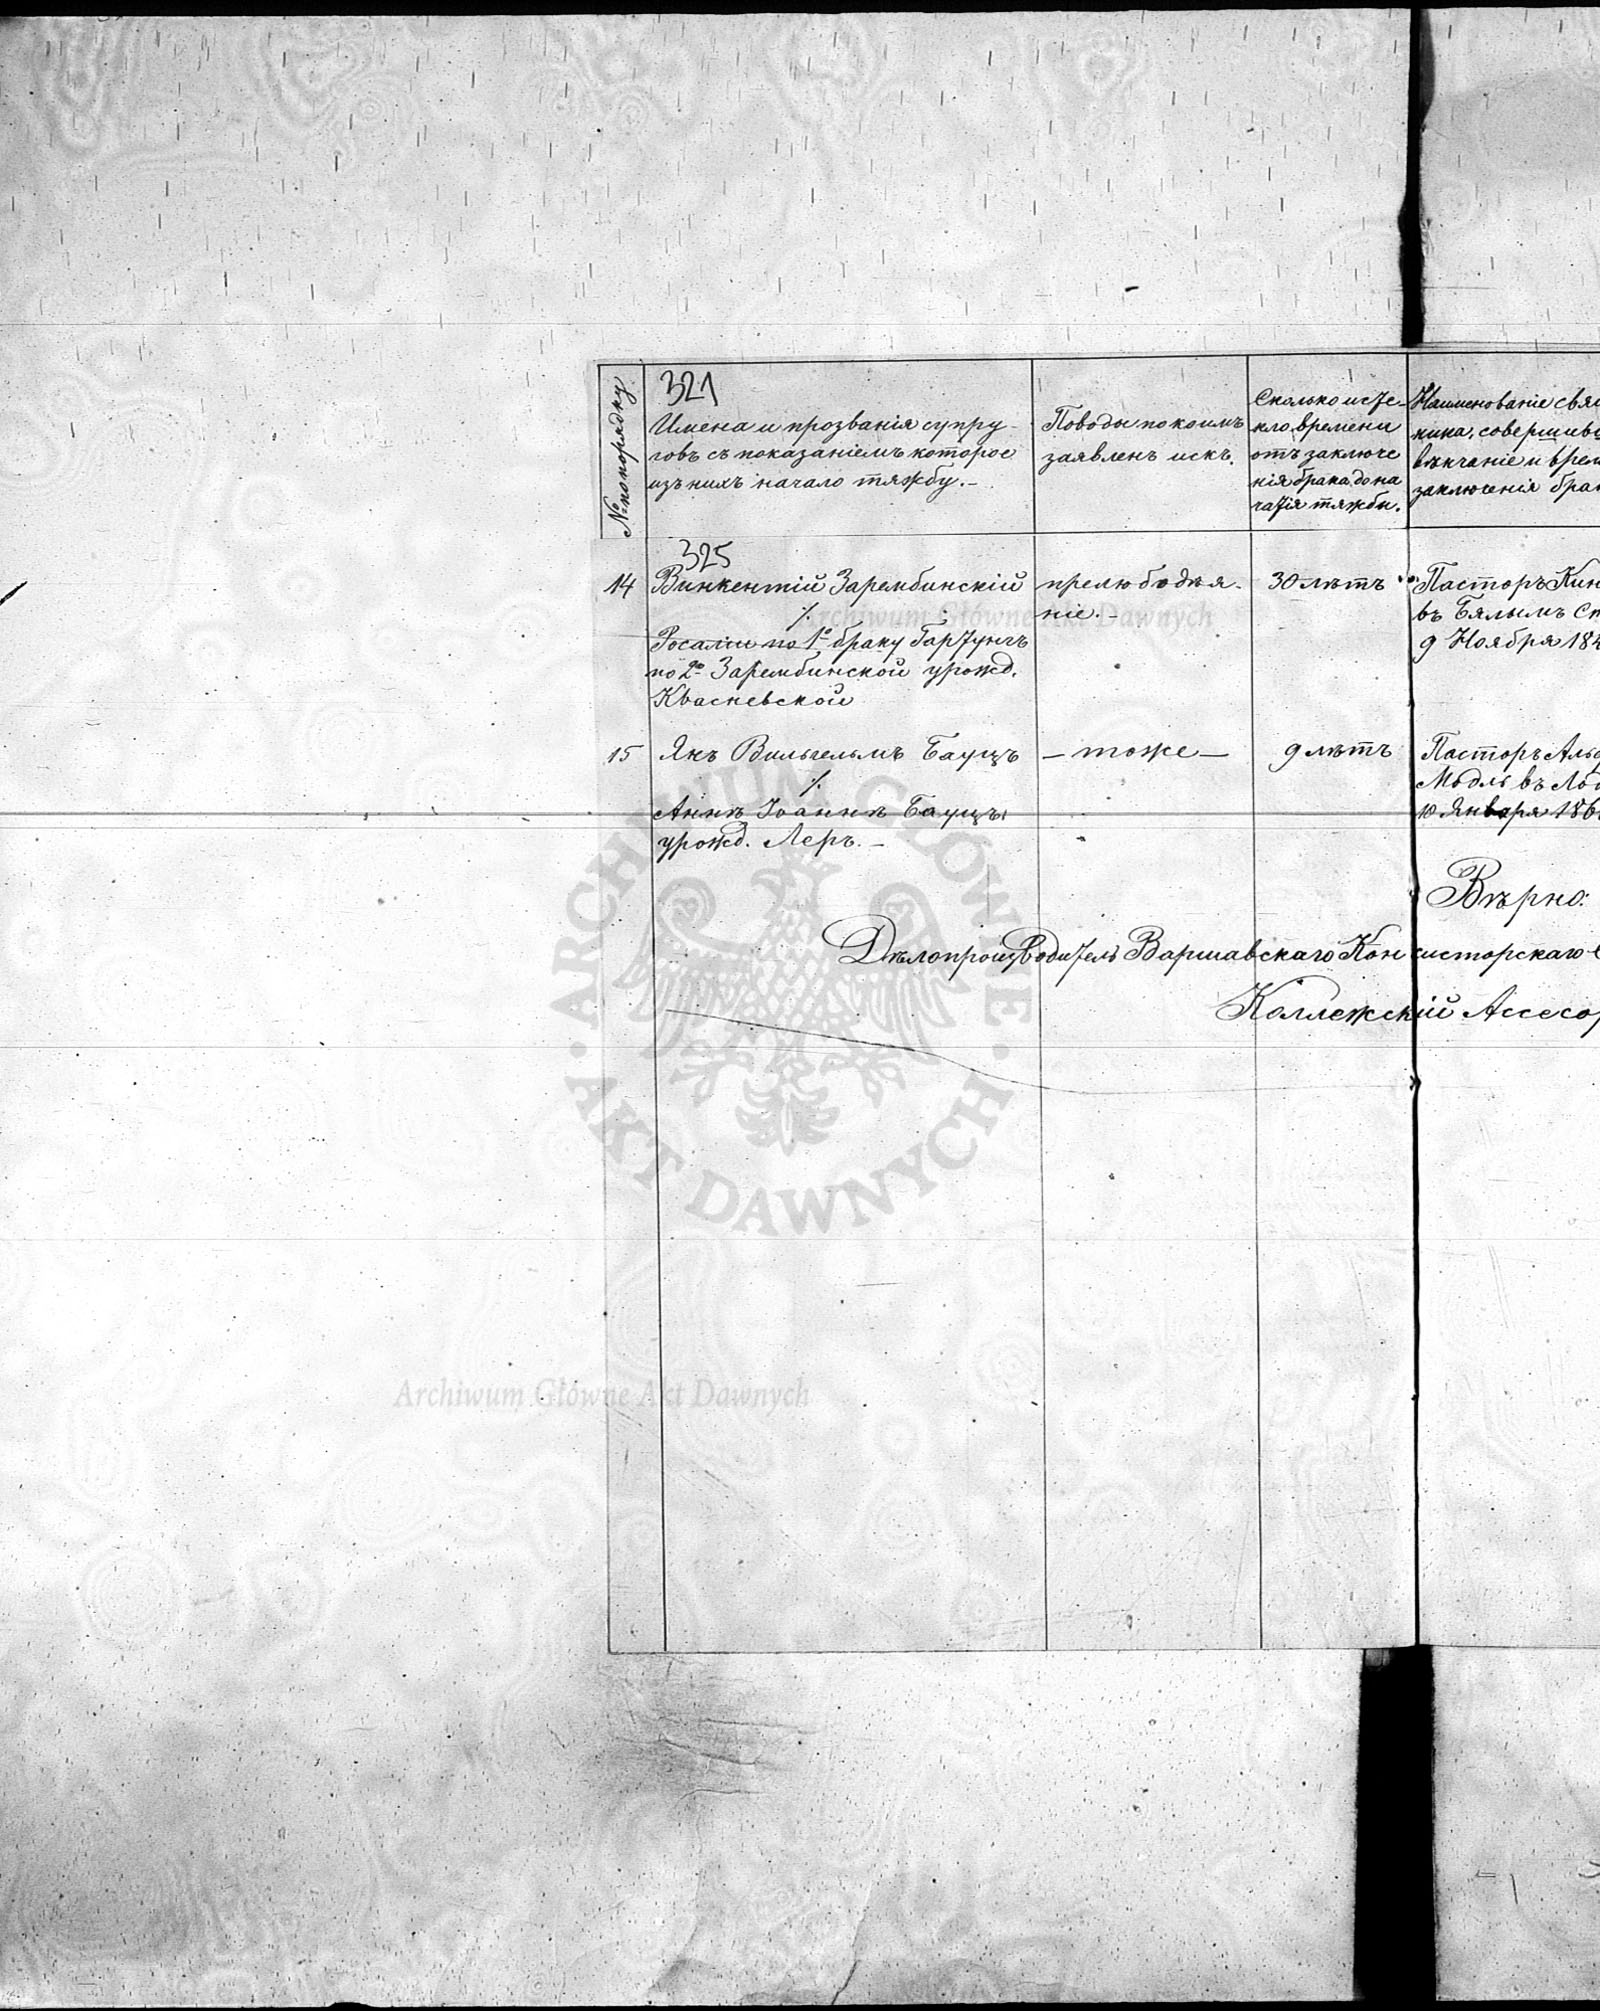 № по порядку
321
Имена и прозванія супру-
говъ съ показаніемъ которое
изъ нихъ начало тяжбу.-
Поводы по коимъ
заявленъ искъ.
Сколько исте-
кло времени
отъ заключе
нія брака до на
чатія тяжбы.
Наименованіе свя
ника, соверши
вѣнчаніе и врем
заключенія бра
325
14
Винкентій Зарембинскій
%
Росаліи по 1º браку Гартунгъ
по 2º Зарембинской урожд.
Квасневской
прелюбодѣя-
ніе.-
30 лѣтъ
Пасторъ Кин
въ Бялымъ Ст
9 Ноября 184
15
Янъ Вильгельмъ Бауцъ
%
Аннѣ Іоаннѣ Бауцъ
урожд. Леръ.-
- тоже -
9 лѣтъ
Пасторъ Аль
Модль въ Ло
10 Января 186
Вѣрно:
Дѣлопроизводитель Варшавскаго Консисторскаго
Коллежскій Ассесор
ARCHIWUM GŁÓWNE
AKT DAWNYCH
Archiwum Główne Akt Dawnych
Archiwum Główne Akt Dawnych